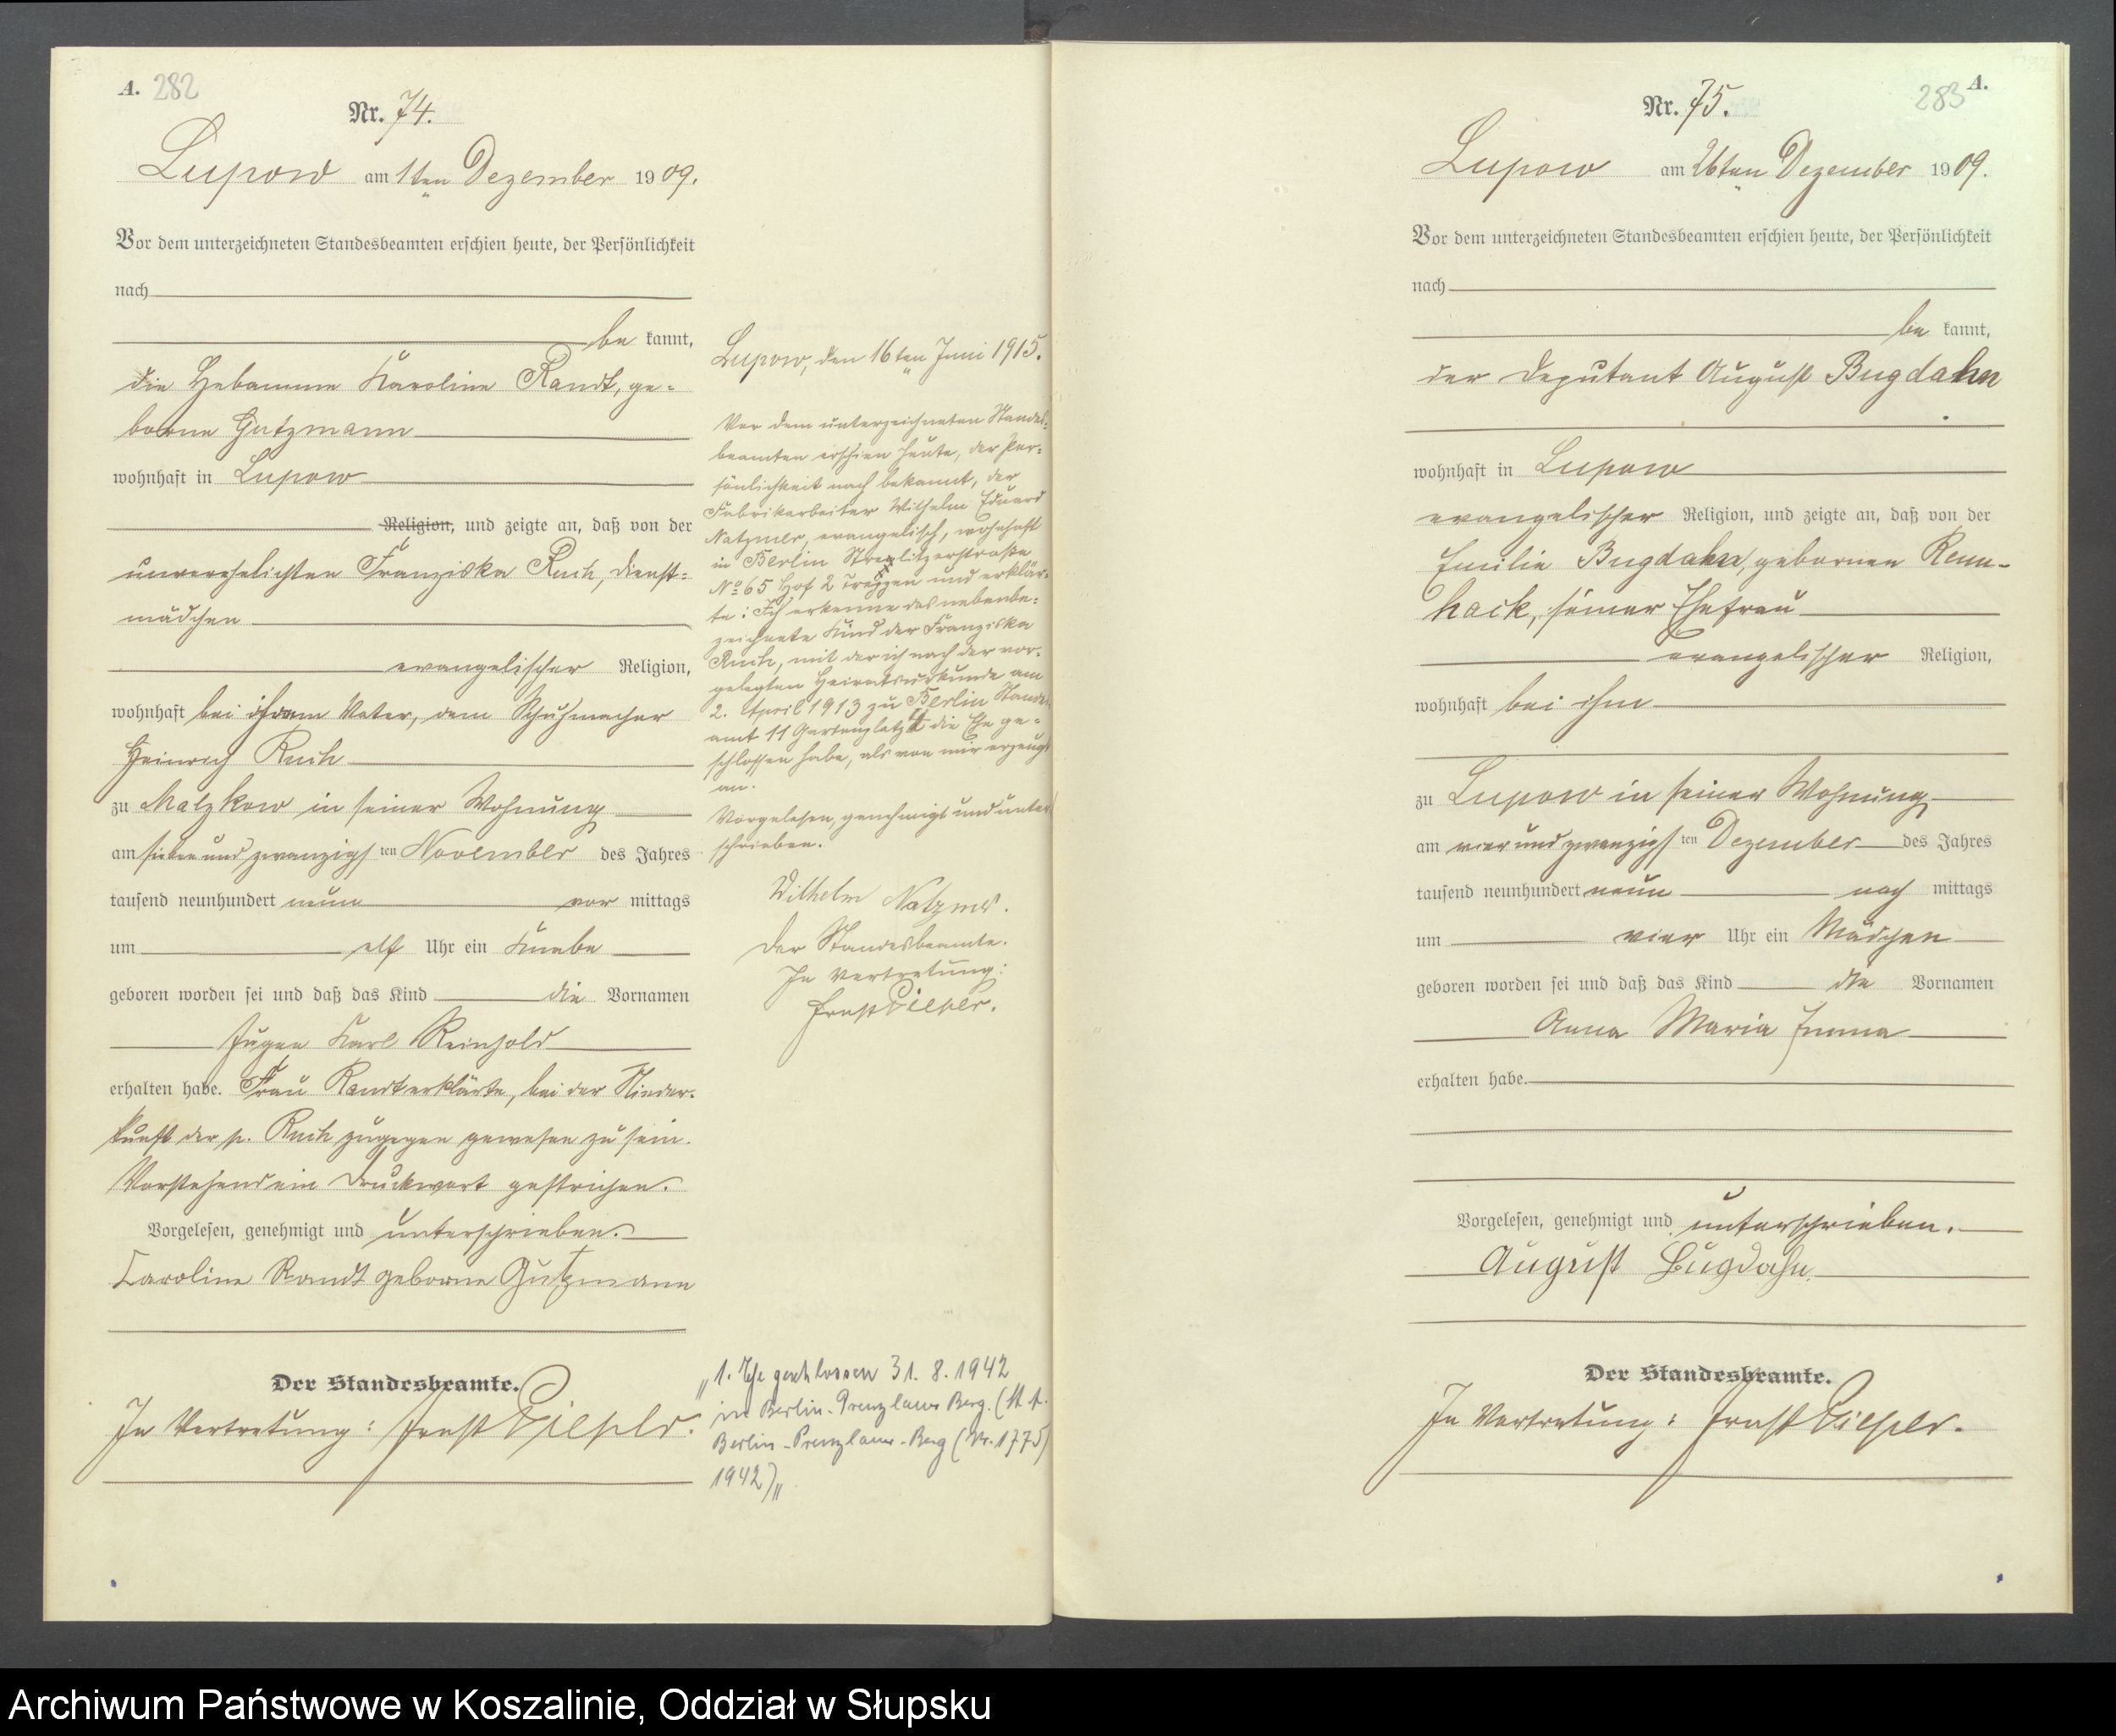 A. 282
Nr. 74.
Lupow am 1ten Dezember 1909.
Vor dem unterzeichneten Standesbeamten erschien heute, der Persönlichkeit
nach
be kannt,
die Hebamme Karoline Randt, ge-
borne Gutzmann
wohnhaft in Lupow
Religion, und zeigte an, daß von der
unverehelichten Franziska Ruch, Dienst-
mädchen
evangelischer Religion,
wohnhaft bei ihrem Vater, dem Schuhmacher
Heinrich Ruch
zu Malzkow in seiner Wohnung
am sieben und zwanzigsten November des Jahres
tausend neunhundert neun vor mittags
um elf Uhr ein Knabe
geboren worden sei und daß das Kind die Vornamen
Eugen Karl Reinhold
erhalten habe. Frau Randt erklärte, bei der Nieder-
kunft der p. Ruch zugegen gewesen zu sein.
Vorstehend ein Druckwort gestrichen.
Vorgelesen, genehmigt und unterschrieben.
Caroline Randt geborne Gutzmann
Der Standesbeamte.
In Vertretung: Ernst
Lupow, den 16ten Juni 1915.
Vor dem unterzeichneten Standes-
beamten erschien heute, der Per-
sönlichkeit nach bekannt, der
Fabrikarbeiter Wilhelm Eduard
Natzmer, evangelisch, wohnhaft
in Berlin Strelitzerstraße
No 65 Hof 2 Treppen und erklär-
te: Ich erkenne das nebenbe-
zeichnete Kind der Franziska
Ruch, mit der ich nach der vor-
gelegten Heiratsurkunde am
2. April 1913 zu Berlin Standes-
amt 11 Gartenplatz 4 die Ehe ge-
schlossen habe, als von mir erzeugt
an.
Vorgelesen, genehmigt und unter
schrieben.
Wilhelm Natzmer.
Der Standesbeamte.
In Vertretung:
Ernst
„1. Ehe geschlossen 31. 8. 1942
in Berlin-Prenzlauer Berg. (St. A.
Berlin-Prenzlauer-Berg (Nr. 1775)
1942)„
283 A.
Nr. 75.
Lupow am 26ten Dezember 1909.
Vor dem unterzeichneten Standesbeamten erschien heute, der Persönlichkeit
nach
be kannt,
der Deputant August Bugdahn
wohnhaft in Lupow
evangelischer Religion, und zeigte an, daß von der
Emilie Bugdahn, gebornen Renn-
hack, seiner Ehefrau
evangelischer Religion,
wohnhaft bei ihm
zu Lupow in seiner Wohnung
am vier und zwanzigsten Dezember des Jahres
tausend neunhundert neun nach mittags
um vier Uhr ein Mädchen
geboren worden sei und daß das Kind die Vornamen
Anna Maria Emma
erhalten habe.
Vorgelesen, genehmigt und unterschrieben.
August Bugdahn
Der Standesbeamte.
In Vertretung: Ernst
Archiwum Państwowe w Koszalinie, Oddział w Słupsku